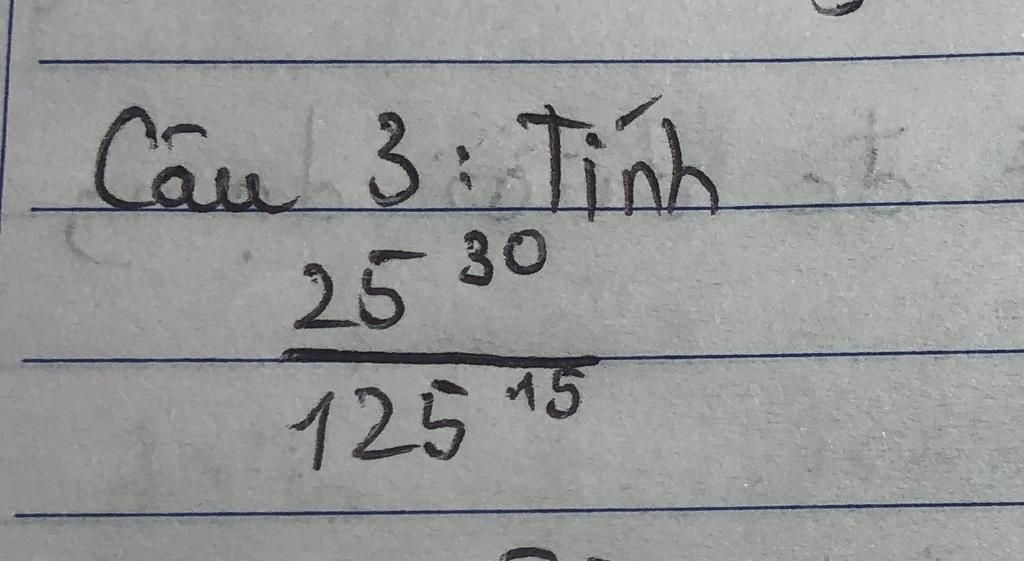 Câu 3: Tính
25^30
125^15